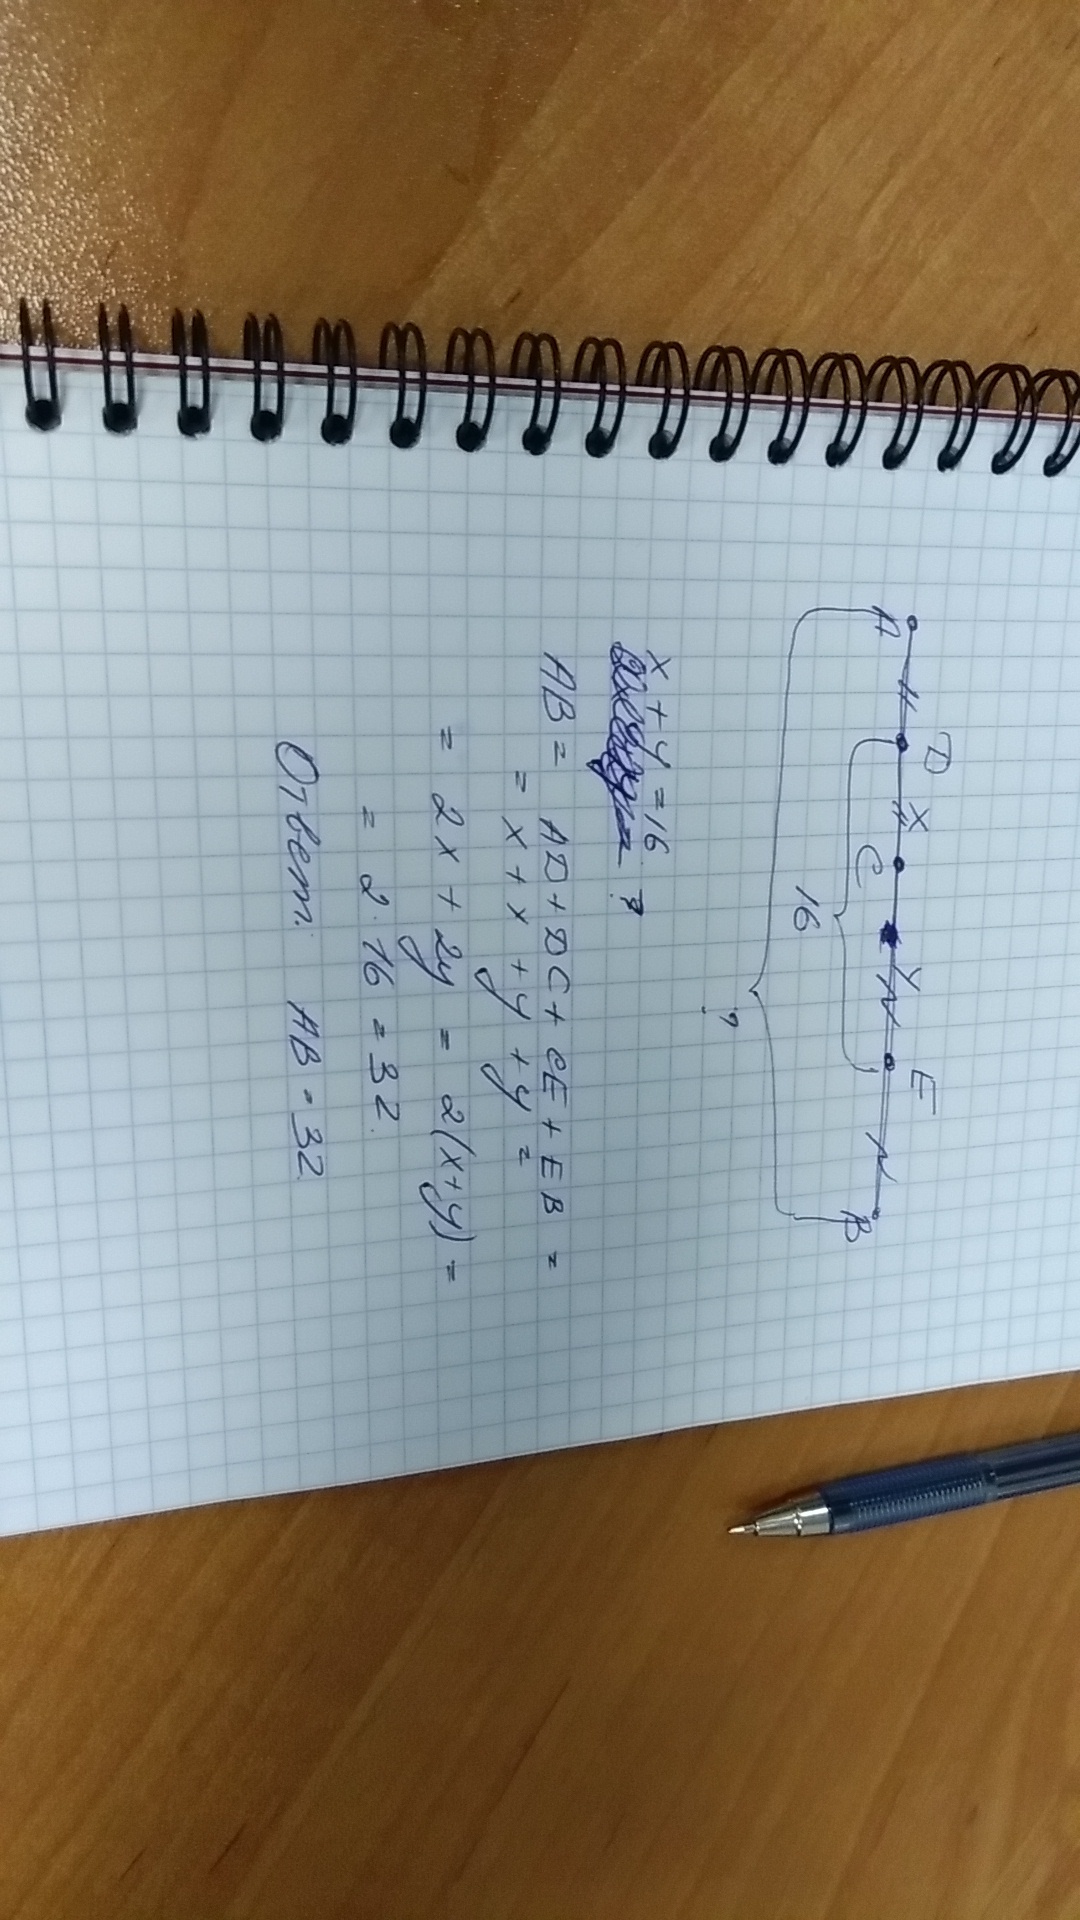 A D X C Y E B
16
?
x + y = 16
AB = AD + DC + CE + EB =
= x + x + y + y =
= 2x + 2y = 2(x+y) =
= 2 · 16 = 32.
Ответ: AB = 32